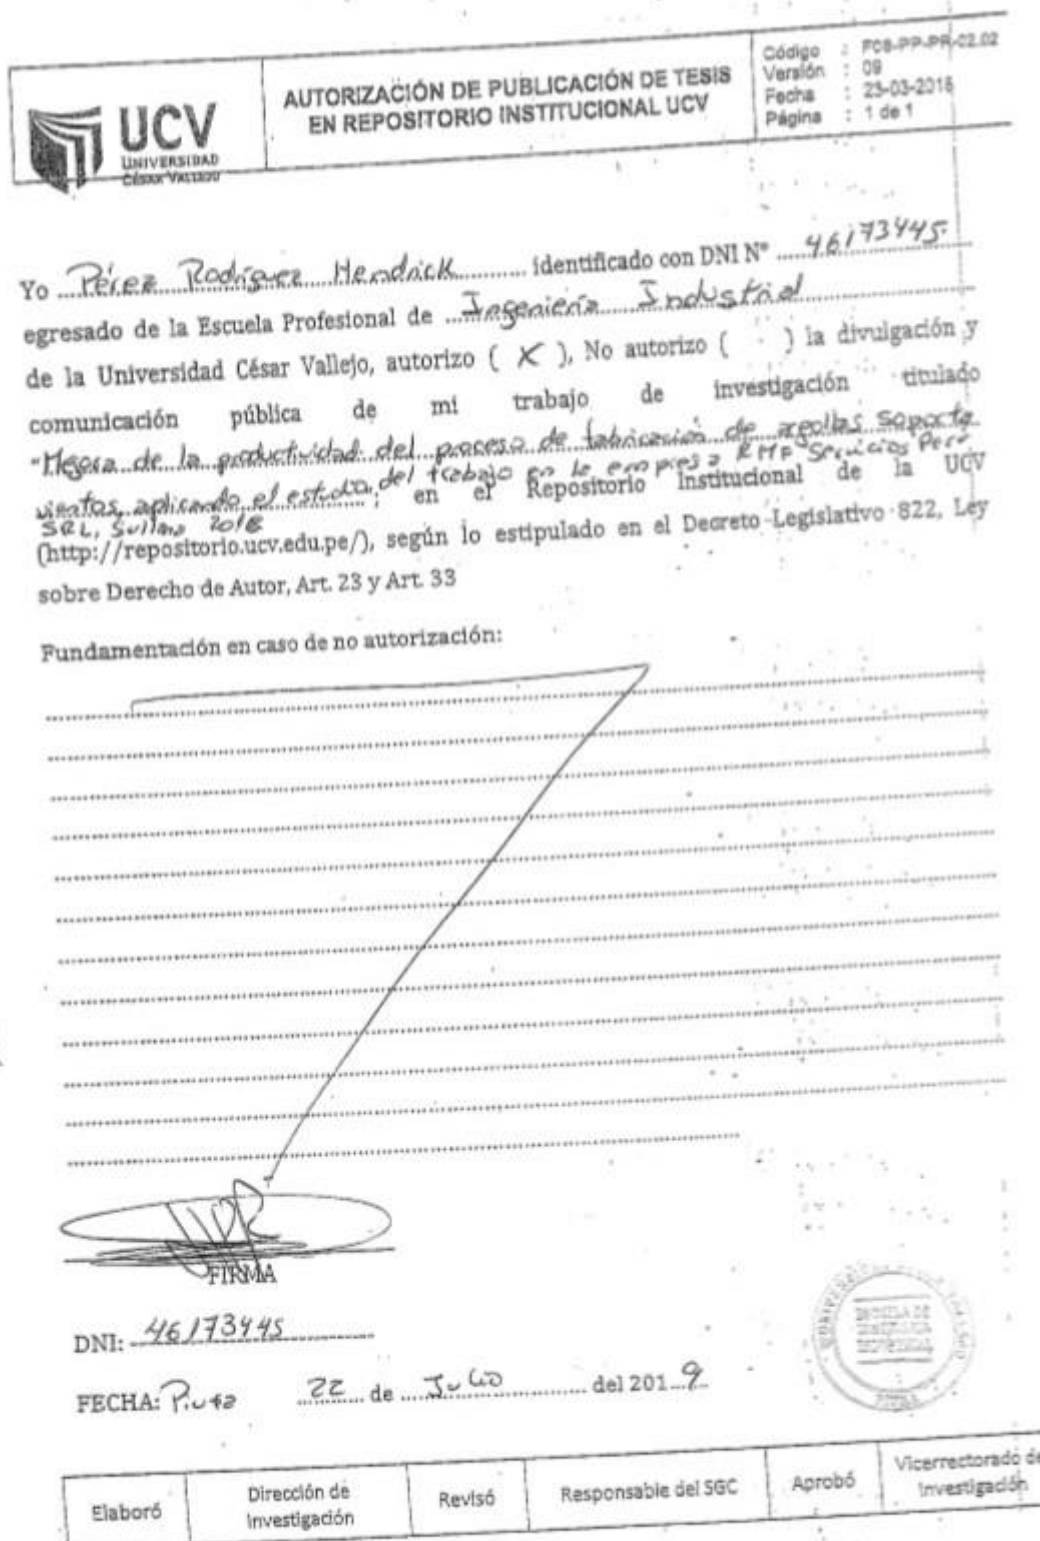 UCV
UNIVERSIDAD
CÉSAR VALLEJO
AUTORIZACIÓN DE PUBLICACIÓN DE TESIS
EN REPOSITORIO INSTITUCIONAL UCV
Código : F08-PP-PR-02.02
Versión : 09
Fecha : 23-03-2018
Página : 1 de 1
Yo Pérez Rodríguez Hendrick identificado con DNI N° 46173445
egresado de la Escuela Profesional de Ingeniería Industrial
de la Universidad César Vallejo, autorizo ( X ), No autorizo ( ) la divulgación y
comunicación pública de mi trabajo de investigación titulado
"Mejora de la productividad del proceso de fabricación de argollas soporta
vientos, aplicando el estudio del trabajo en la empresa RMP Servicios Perú
SRL, Sullana 2018 "; en el Repositorio Institucional de la UCV
(http://repositorio.ucv.edu.pe/), según lo estipulado en el Decreto Legislativo 822, Ley
sobre Derecho de Autor, Art. 23 y Art. 33
Fundamentación en caso de no autorización:
FIRMA
DNI: 46173445
FECHA: Piura 22 de Julio del 2019
ESCUELA DE
INGENIERÍA
Elaboró
Dirección de
Investigación
Revisó
Responsable del SGC
Aprobó
Vicerrectorado de
Investigación